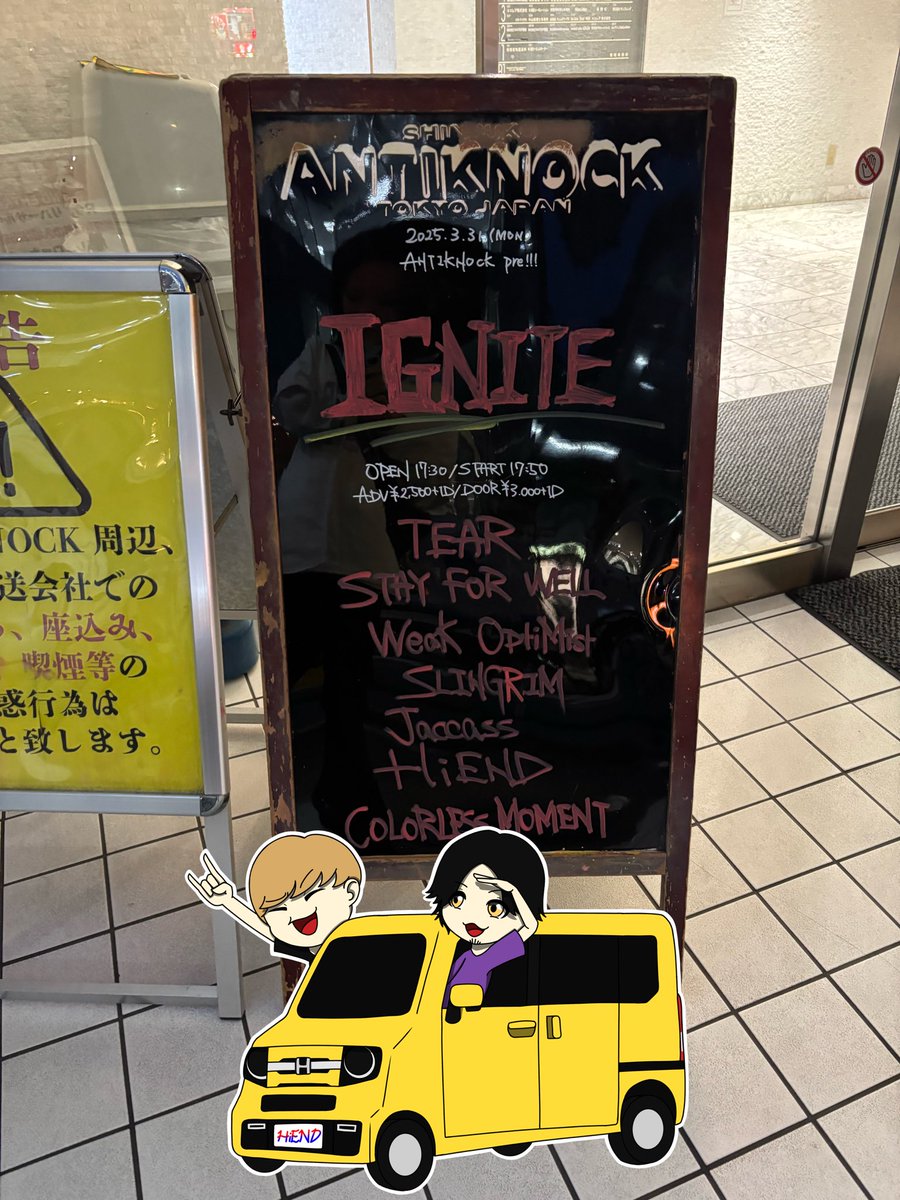 ANTIKNOCK
TOKYO JAPAN
2025.3.31(MON)
ANTIKNOCK pre!!!
IGNITE
OPEN 17:30/START 17:50
ADV ¥2,500+1D/DOOR ¥3.000+1D
TEAR
STAY FOR WELL
Weak OptiMist
SLINGRIM
Jaccass
HiEND
COLORLESS MOMENT
告
!
NOCK 周辺、
送会社での
、座込み、
喫煙等の
惑行為は
と致します。
H
HiEND